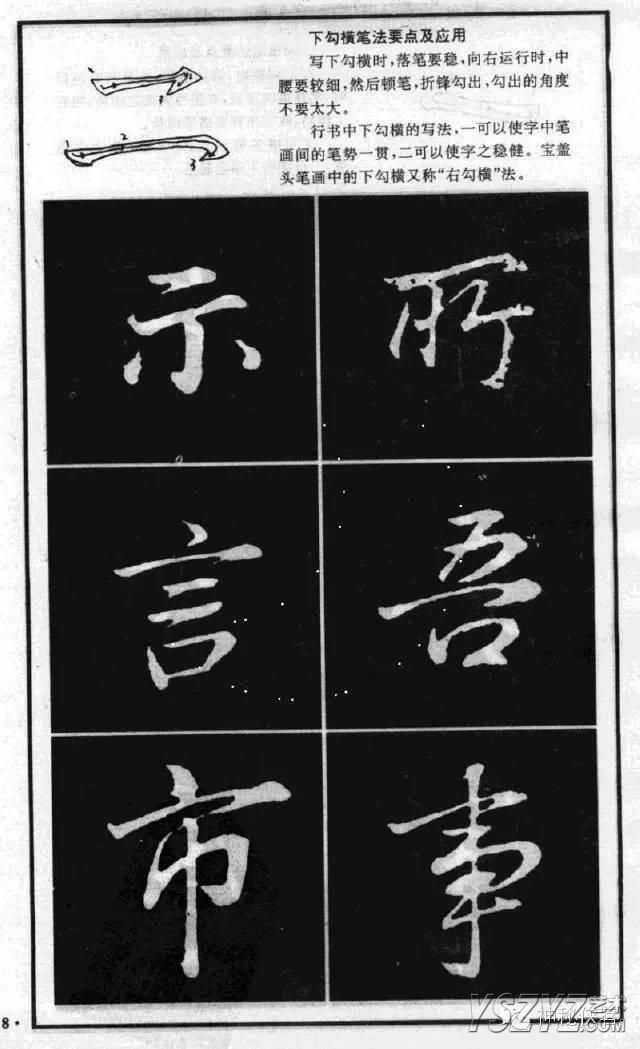 下勾横笔法要点及应用
写下勾横时,落笔要稳,向右运行时,中
腰要较细,然后顿笔,折锋勾出,勾出的角度
不要太大。
行书中下勾横的写法,一可以使字中笔
画间的笔势一贯,二可以使字之稳健。宝盖
头笔画中的下勾横又称“右勾横”法。
1 2 3
示 所
言 吾
市 事
8·
YSZYZ